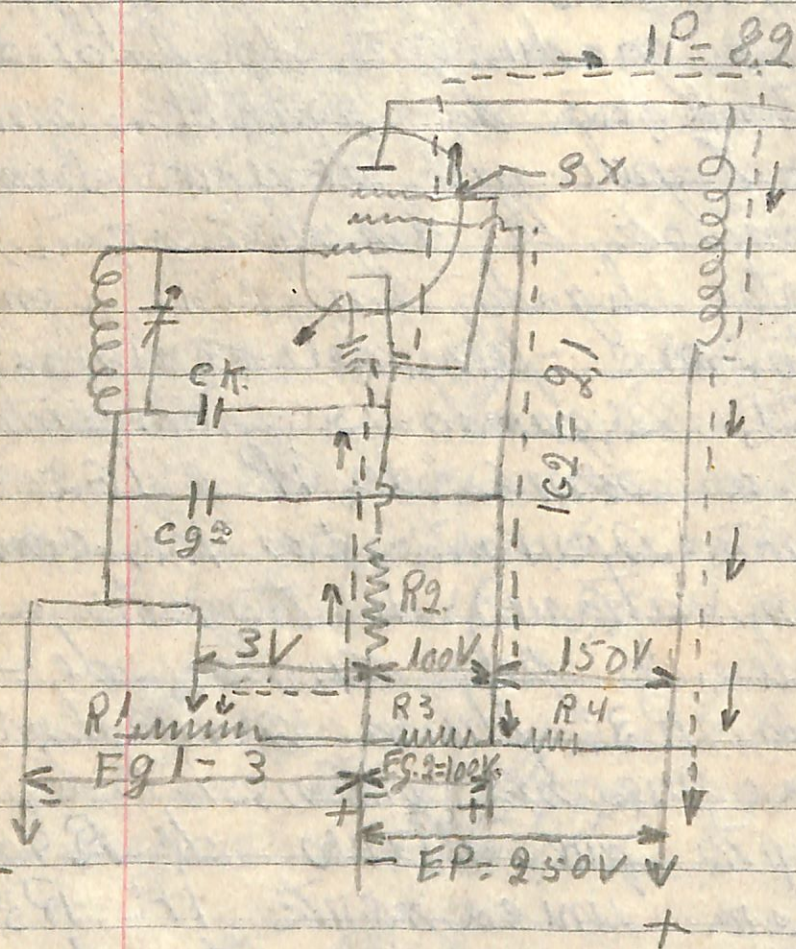 IP = 8.2
SX
CK.
IG2 = 2,1
Cg2
R2.
3V
100V
150V
R1
R3
R4
Eg1 = 3
Eg.2=100V.
-
+
-
+
- EP = 250V
-
+